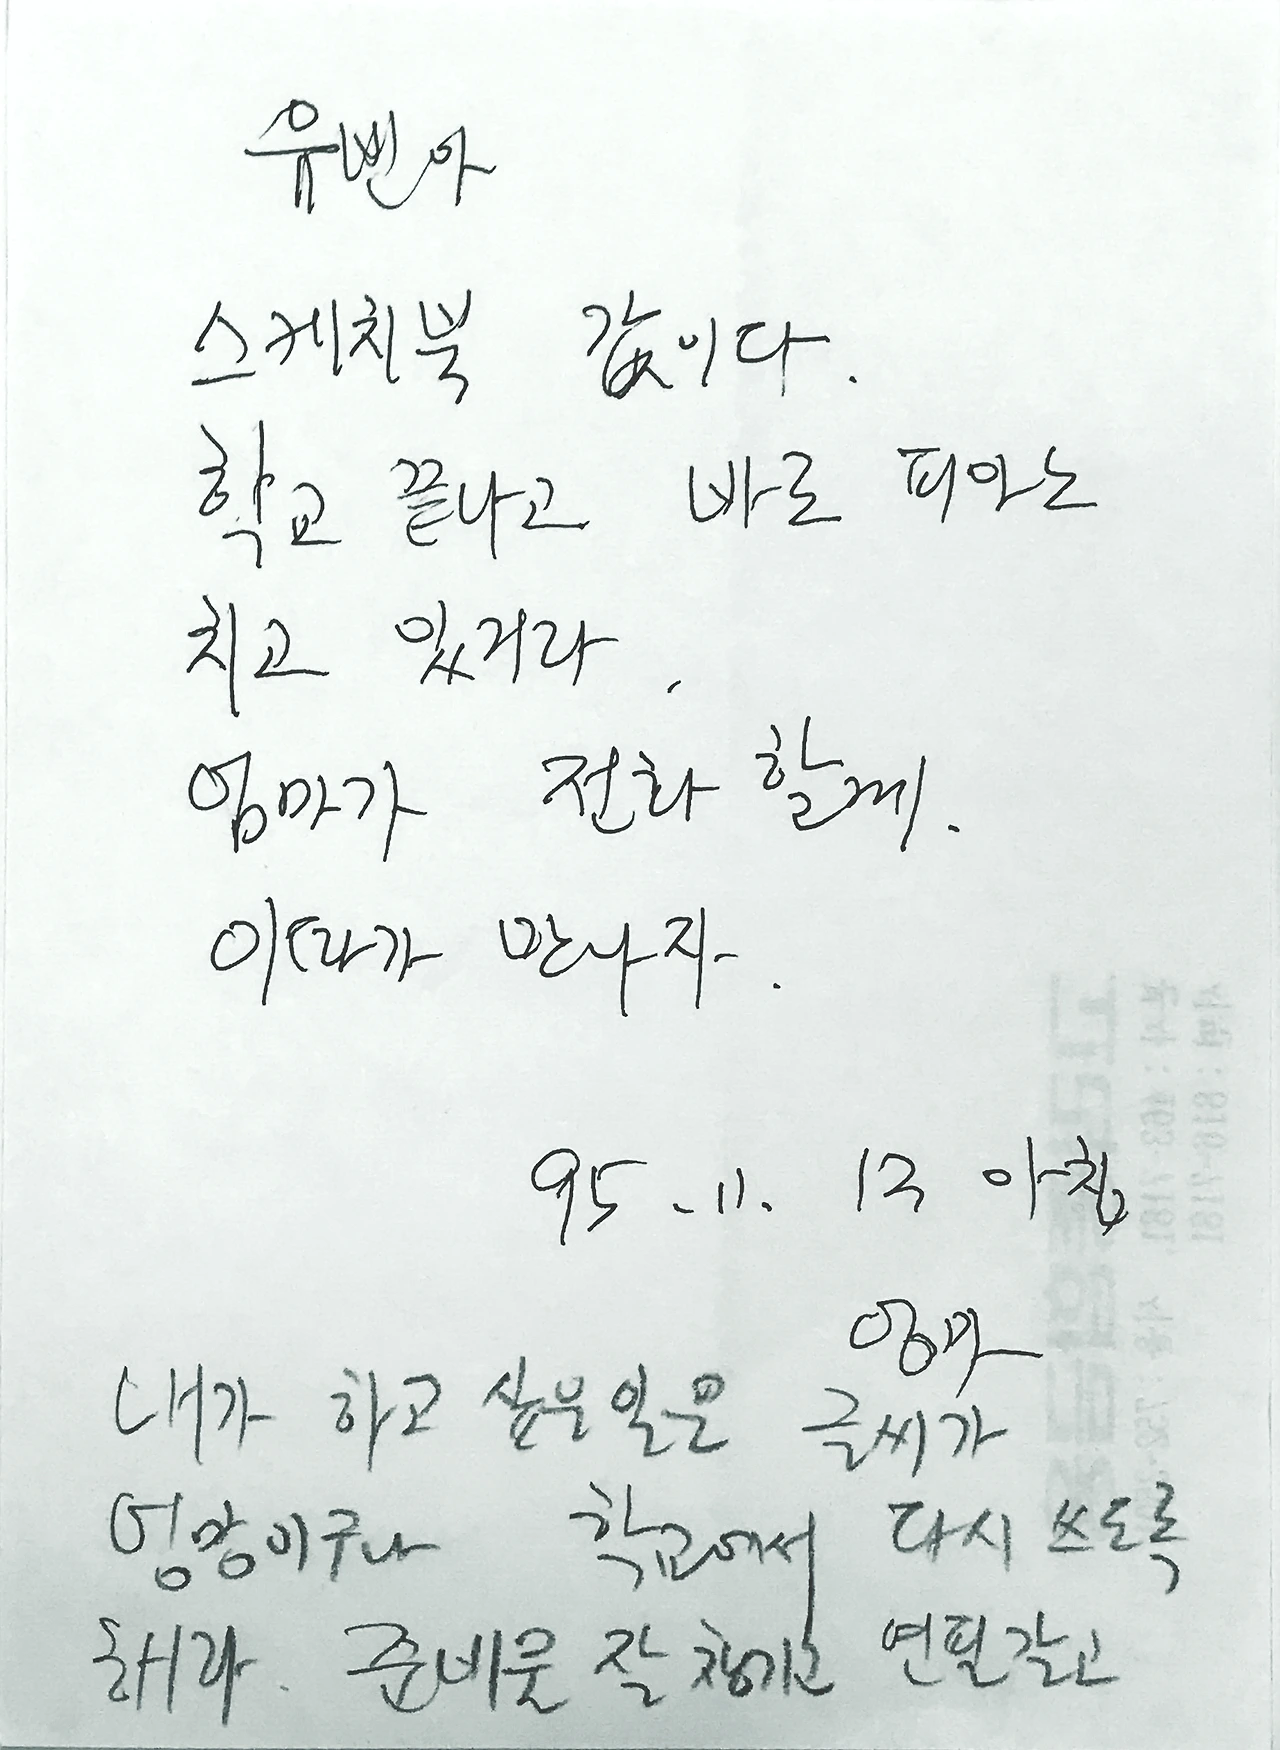 유빈아
스케치북 값이다.
학교 끝나고 바로 피아노
치고 있거라.
엄마가 전화 할께.
이따가 만나자.
95. 11. 17 아침
엄마
내가 하고 싶은 일은 글씨가
엉망이구나 학교에서 다시 쓰도록
해라. 준비물 잘 챙기고 연필갈고